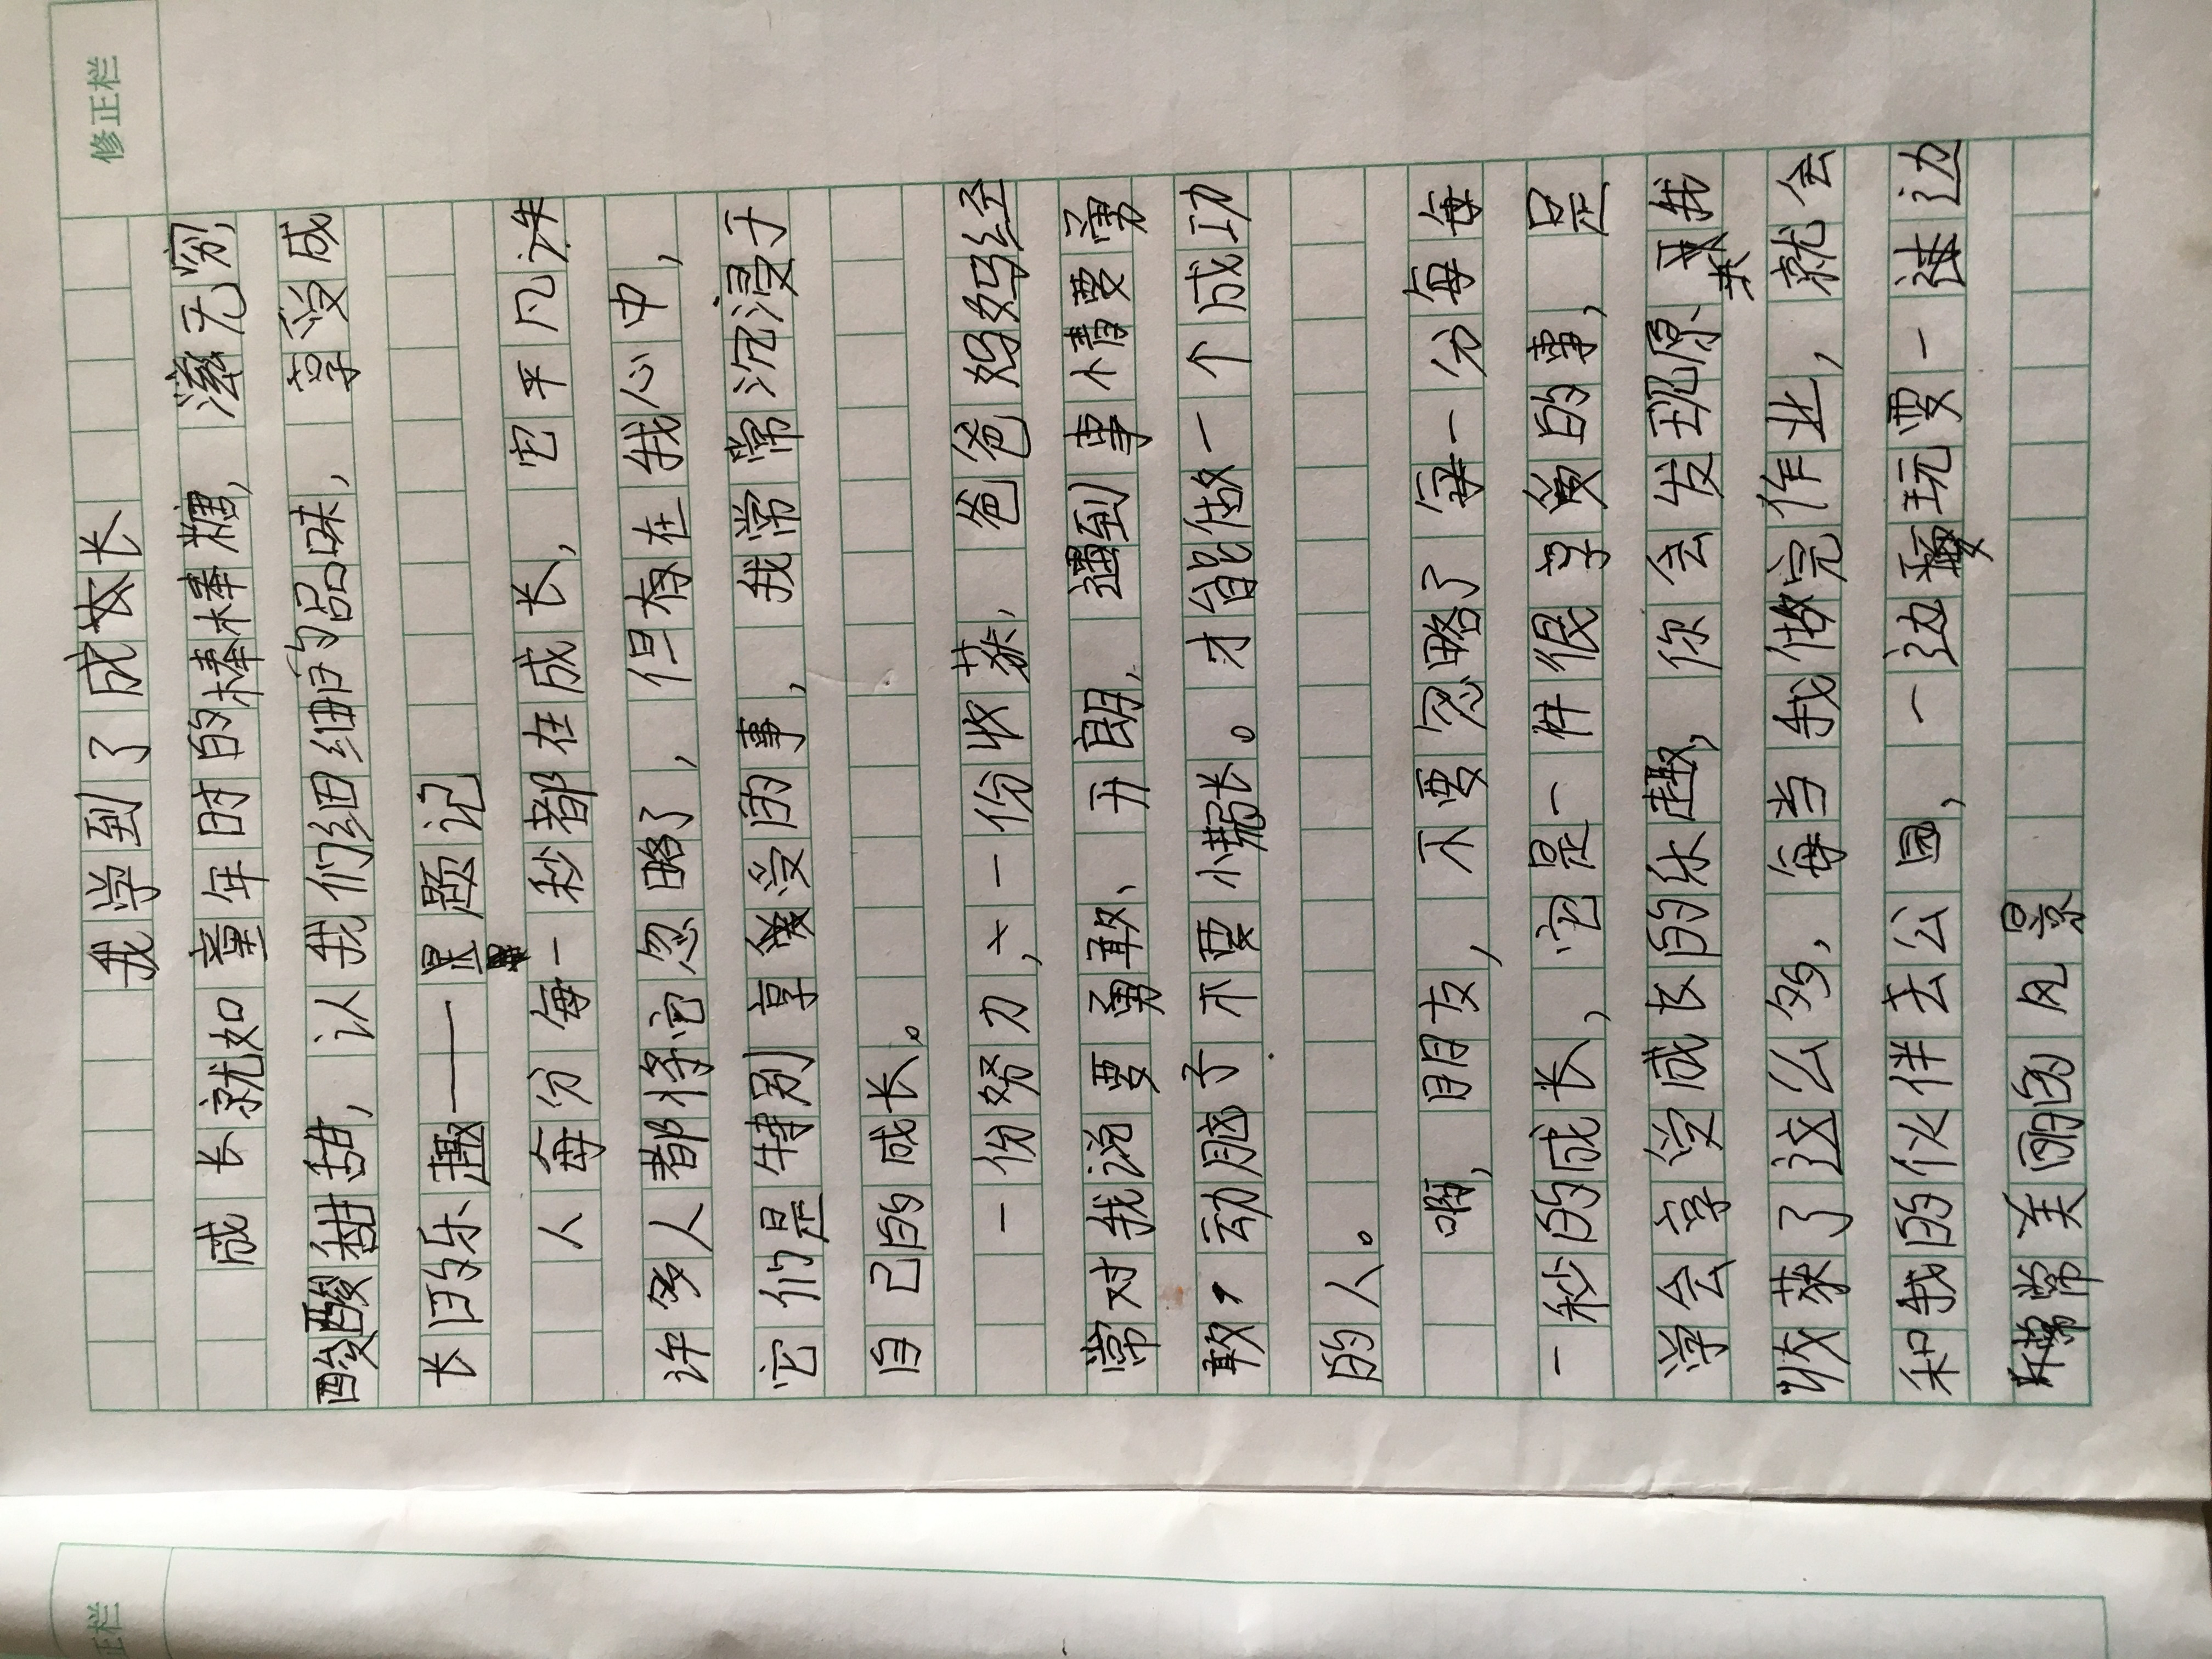 修正栏
我学到了成长
成长就如童年时的棒棒糖，滋无穷，
酸酸甜甜，认我们细细的品味，享受成
长的乐趣——是题记
人每分每一秒都在成长，它平凡许
许多人都将它忽略了，但存在我心中，
它们是特别享受的事，我常常沉浸于
自己的成长。
一份努力，一份收获，爸爸妈妈经
常对我说要勇敢、开朗，遇到事情要勇
敢，动脑子不要慌张。才能做一个成功
的人。
啊，朋友，不要忽略了每一分每每
一秒的成长，它是一件很享受的事，是
学会享受成长的乐趣，你会发现原我
收获了这么多，每当我做完作业，就会
和我的伙伴去公园，一边玩耍一边
常常美丽的风景
正栏